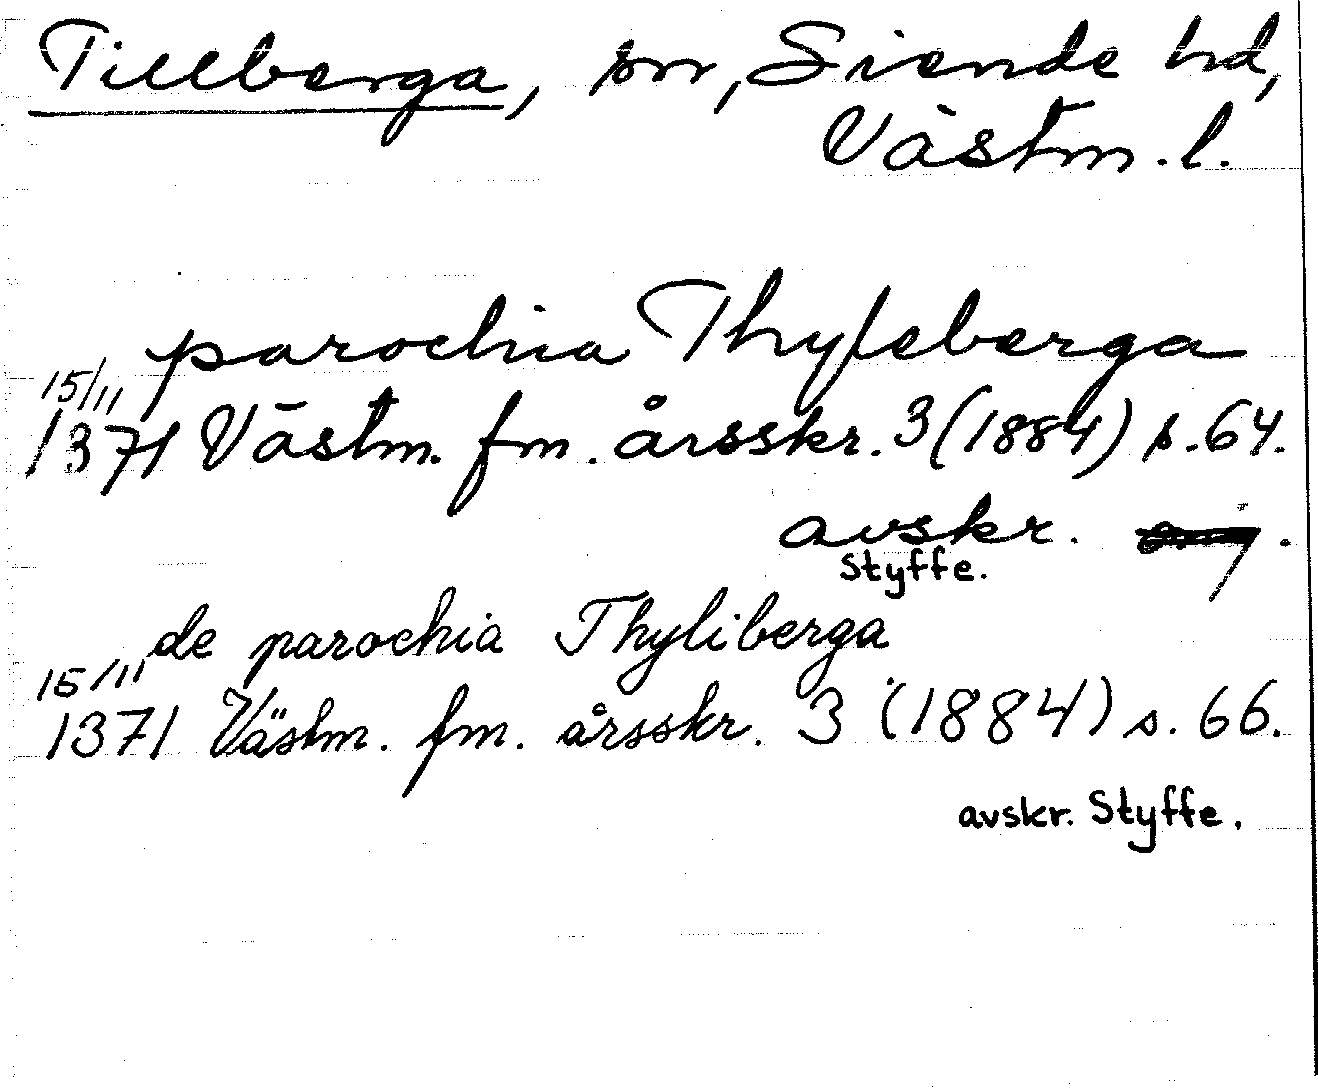 Tillberga, sn, Siende hd,
Västm. l.
parochia Thyleberga
15/11
1371 Västm. fm. årsskr. 3 (1884) s. 64.
avskr.
Styffe.
de parochia Thyliberga
15/11
1371 Västm. fm. årsskr. 3 (1884) s. 66.
avskr. Styffe.